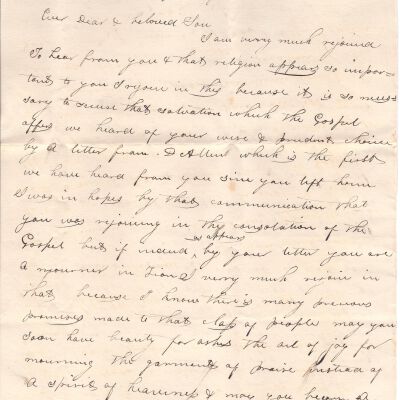 Ever Dear & beloved Son
I am very much rejoiced
To hear from you & that religion appears so impor-
tant to you I rejoice in this because it is so neces
sary to secure that salvation which the Gospel
affers we heard of your wise & prudent choice
by a letter from. D Allen which is the first
we have heard from you sine you left heree
I was in hopes by that communication that
you was rejoicing in the consolation of the
Gospel but if indeed, it appears by your letter you are
a mourner in Zion I very much rejoice in
that because I know there is many precious
promises made to that class of people may you
soon have beauty for ashes the oil of joy for
mourning the garment of praise instead of
a spirit of heaviness & may you become a